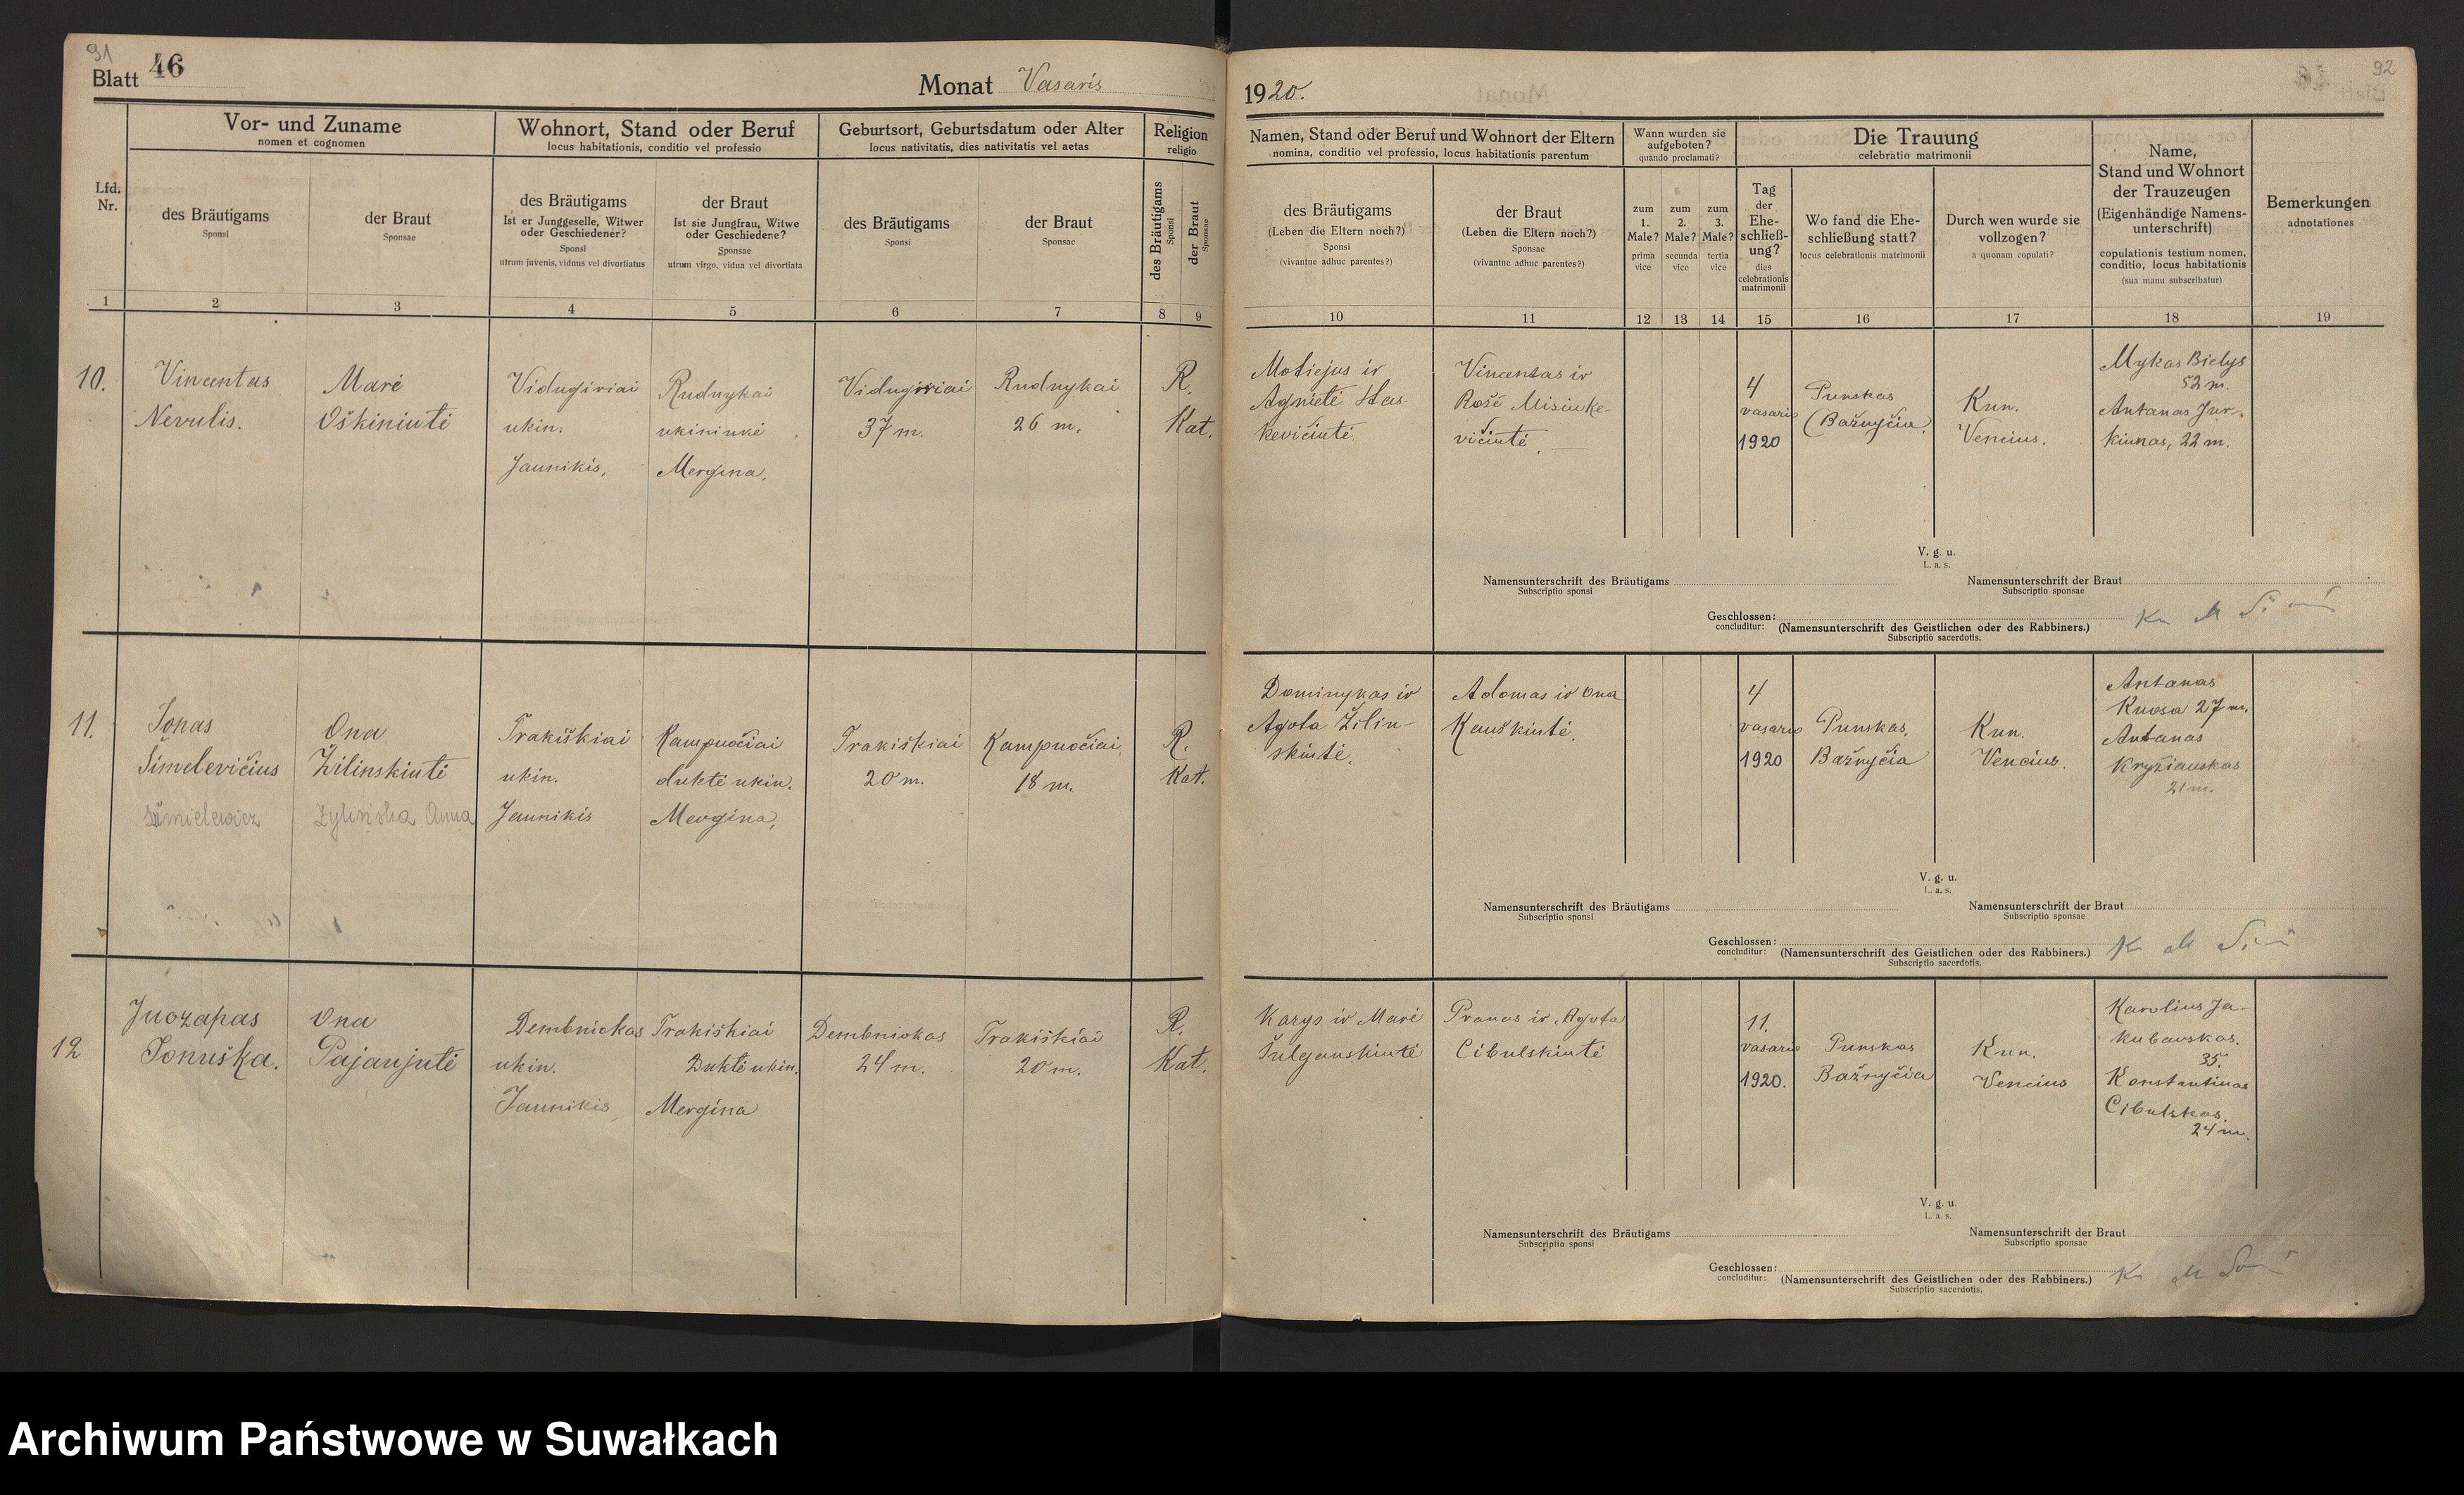 91
Blatt 46
Monat Vasaris
1920.
92
Lfd. Nr.
Vor- und Zuname
nomen et cognomen
des Bräutigams
Sponsi
der Braut
Sponsae
Wohnort, Stand oder Beruf
locus habitationis, conditio vel professio
des Bräutigams
Ist er Junggeselle, Witwer
oder Geschiedener?
Sponsi
utrum juvenis, viduus vel divortiatus
der Braut
Ist sie Jungfrau, Witwe
oder Geschiedene?
Sponsae
utrum virgo, vidua vel divortiata
Geburtsort, Geburtsdatum oder Alter
locus nativitatis, dies nativitatis vel aetas
des Bräutigams
Sponsi
der Braut
Sponsae
Religion
religio
des Bräutigams
Sponsi
der Braut
Sponsae
Namen, Stand oder Beruf und Wohnort der Eltern
nomina, conditio vel professio, locus habitationis parentum
des Bräutigams
(Leben die Eltern noch?)
Sponsi
(vivantne adhuc parentes?)
der Braut
(Leben die Eltern noch?)
Sponsae
(vivantne adhuc parentes?)
Wann wurden sie
aufgeboten?
quando proclamati?
zum 1. Male?
prima vice
zum 2. Male?
secunda vice
zum 3. Male?
tertia vice
Die Trauung
celebratio matrimonii
Tag
der
Ehe-
schließ-
ung?
dies
celebrationis
matrimonii
Wo fand die Ehe-
schließung statt?
locus celebrationis matrimonii
Durch wen wurde sie
vollzogen?
a quonam copulati?
Name,
Stand und Wohnort
der Trauzeugen
(Eigenhändige Namens-
unterschrift)
copulationis testium nomen,
conditio, locus habitationis
(sua manu subscribatur)
Bemerkungen
adnotationes
1 2 3 4 5 6 7 8 9 10 11 12 13 14 15 16 17 18 19
10.
Vincentas
Nevulis.
Marė
Oškiniutė
Vidugiriai
ukin.
Jaunikis,
Rudnykai
ukininkė
Mergina,
Vidugiriai
37 m.
Rudnykai
26 m.
R.
Kat.
Motiejus ir
Agnietė Stas-
kevičiutė
Vincentas ir
Rožė Misiuke-
vičiutė.
4
vasario
1920
Punskas
Bažnyčia.
Kun.
Vencius.
Mykas Bielys
52 m.
Antanas Jur-
kiunas, 22 m.
V. g. u.
L. a. s.
Namensunterschrift des Bräutigams
Subscriptio sponsi
Namensunterschrift der Braut
Subscriptio sponsae
Geschlossen:
concluditur:
(Namensunterschrift des Geistlichen oder des Rabbiners.)
Subscriptio sacerdotis.
11.
Jonas
Šimelevičius
Šimielewicz
Ona
Žilinskiutė
Żylińska Anna
Trakiškiai
ukin.
Jaunikis
Kampuočiai
duktė ukin.
Mergina,
Trakiškiai
20 m.
Kampuočiai
18 m.
R.
Kat.
Dominykas ir
Agota Žilin-
skiutė.
Adomas ir Ona
Kauškiutė.
4
vasario
1920
Punskas,
Bažnyčia
Kun.
Vencius.
Antanas
Kuosa 27 m.
Antanas
Kryžiauskas
21 m.
V. g. u.
L. a. s.
Namensunterschrift des Bräutigams
Subscriptio sponsi
Namensunterschrift der Braut
Subscriptio sponsae
Geschlossen:
concluditur:
(Namensunterschrift des Geistlichen oder des Rabbiners.)
Subscriptio sacerdotis.
12
Juozapas
Jonuška.
Ona
Pajaujutė
Dembniokas
ukin.
Jaunikis,
Trakiškiai
Duktė ukin.
Mergina
Dembniokas
24 m.
Trakiškiai
20 m.
R.
Kat.
Karys ir Marė
Šulgauskiutė
Pranas ir Agota
Cibulskiutė
11.
vasario
1920.
Punskas
Bažnyčia
Kun.
Vencius
Karolius Ja-
kubauskas.
35.
Konstantinas
Cibulskas.
24 m.
V. g. u.
L. a. s.
Namensunterschrift des Bräutigams
Subscriptio sponsi
Namensunterschrift der Braut
Subscriptio sponsae
Geschlossen:
concluditur:
(Namensunterschrift des Geistlichen oder des Rabbiners.)
Subscriptio sacerdotis.
Archiwum Państwowe w Suwałkach